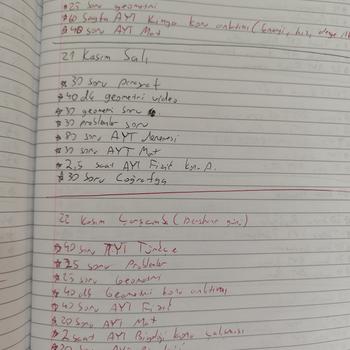 *25 soru geometri
*60 Sayfa AYT Kimya konu anlatımı (Enerji, hız, denge
*40 soru AYT Mat
21 Kasım Salı
*30 soru paragraf
*40 dk geometri video
*30 geometri soru
*30 problemler soru
*80 soru AYT Denemesi
*30 soru AYT Mat
*2,5 saat AYT Fizik kon. A.
*30 soru Coğrafya
22 Kasım Çarşamba (Dershane günü)
*40 soru TYT Türkçe
*25 soru Problemler
*25 soru Geometri
*40 dk Geometri konu anlatımı
*40 soru AYT Fizik
*20 soru AYT Mat
*2 saat AYT Biyoloji konu çalışması
*20 soru AYT